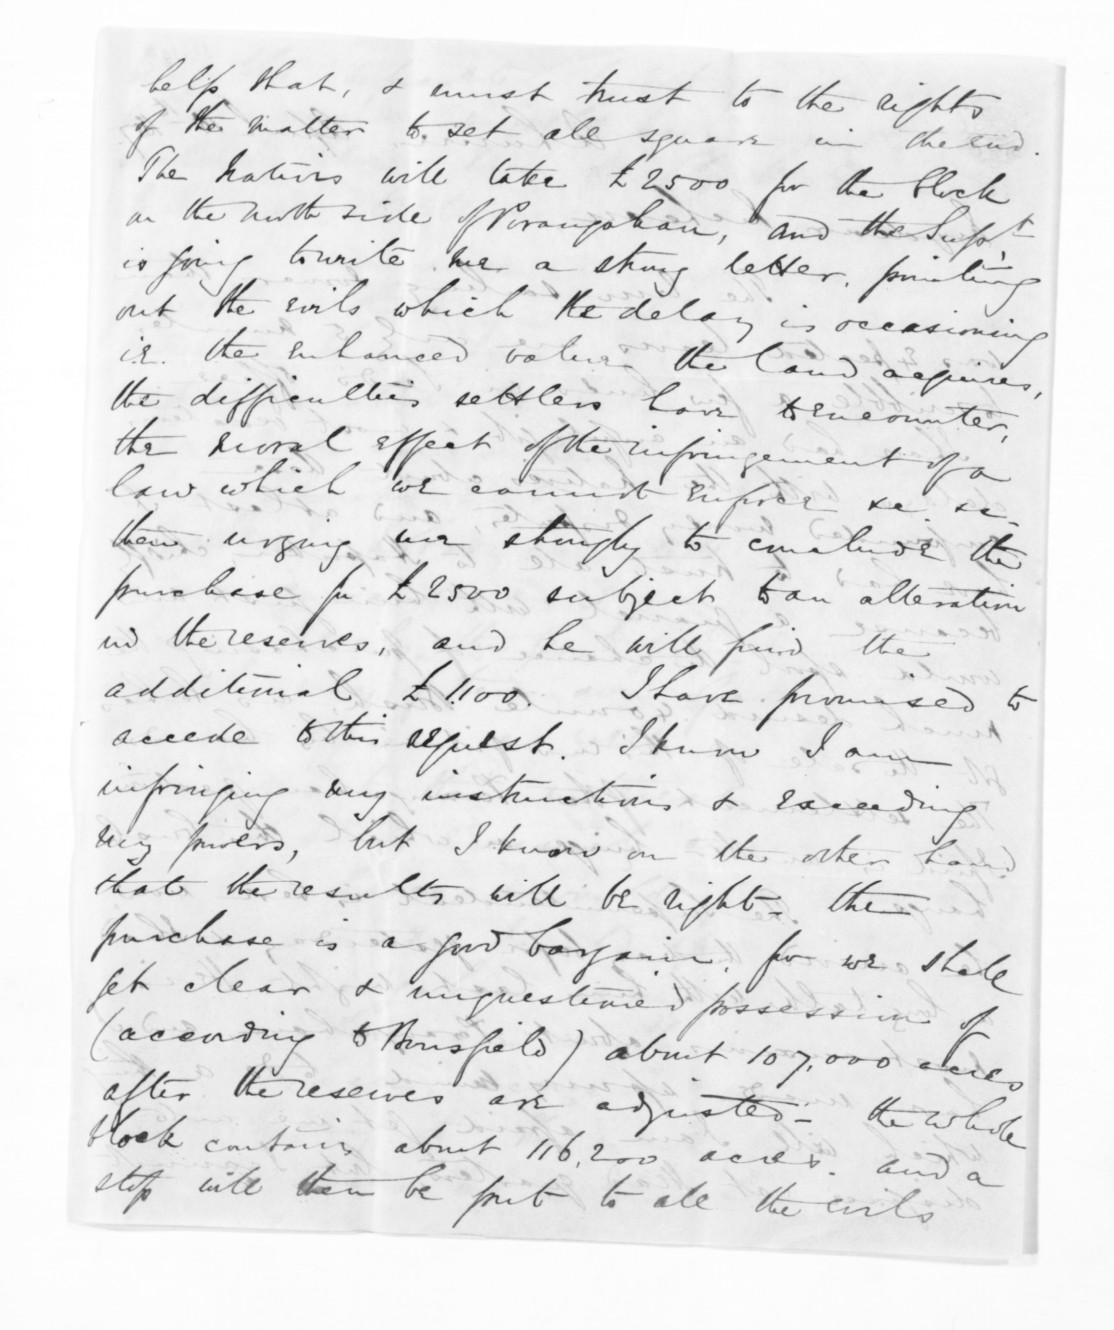 help that, & must trust to the rights
of the matter to set all square in the end.
The Natives will take £2500 for the block
on the north side of Porangahau, and the Supt.
is going to write me a strong letter, pointing
out the evils which the delay is occasioning
i.e. the enhanced value the land acquires,
the difficulties settlers have to encounter,
the moral effect of the infringement of a
law which we cannot enforce &c &c
then urging me strongly to conclude the
purchase for £2500 subject to an alteration
in the reserves, and he will find the
additional £1100. I have promised to
accede to this request. I know I am
infringing my instructions & exceeding
my powers, but I know on the other hand
that the results will be right - the
purchase is a good bargain, for we shall
get clear & unquestioned possession of
(according to Bousfield) about 107,000 acres
after the reserves are adjusted - the whole
block contains about 116,200 acres. and a
stop will then be put to all the evils